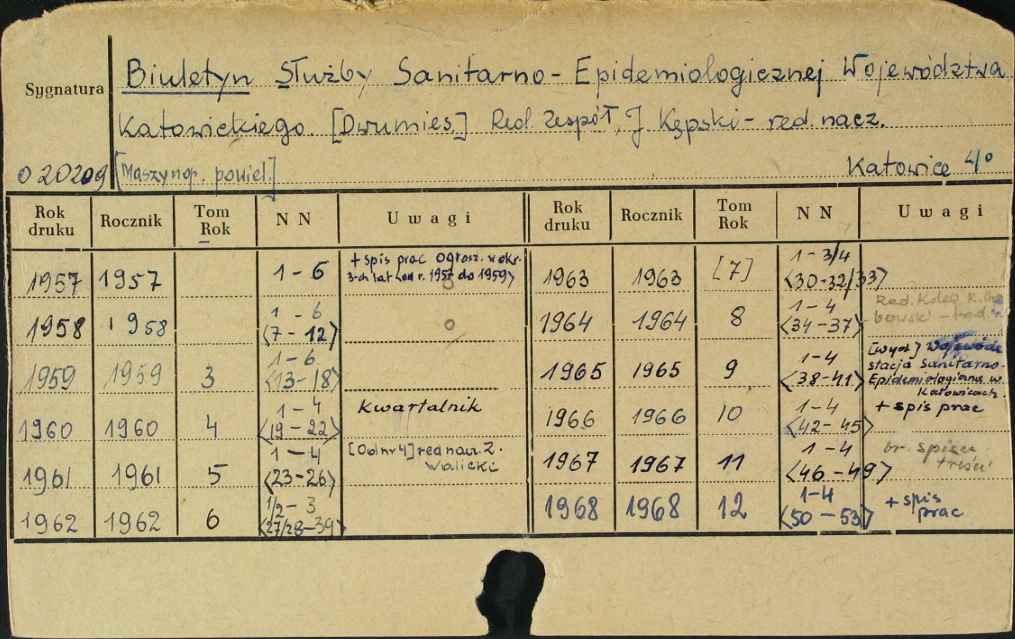 Sygnatura
Biuletyn Służby Sanitarno-Epidemiologicznej Województwa
Katowickiego. [Dwumies.] Red. Zespół, J Kępski - red. nacz.
020209 [Maszynop. powiel.] Katowice 4°
Rok druku Rocznik Tom Rok NN Uwagi
1957 1957 1-6 + spis prac ogłosz. w okr. 3-ch lat (od r. 1957 do 1959)
1958 1958 1-6 <7-12>
1959 1959 3 1-6. <13-18>
1960 1960 4 1-4 <19-22> Kwartalnik
1961 1961 5 1-4 <23-26> [Od nr 4] red. nacz. Z. Walicki
1962 1962 6 1/2-3 <27/28-39>
Rok druku Rocznik Tom Rok NN Uwagi
1963 1963 [7] 1-3/4 <30-32/33>
1964 1964 8 1-4 <34-37> Red. Koleg. K.
1965 1965 9 1-4 <38-41> [Wyd.] Wojewódz. stacja Sanitarno-Epidemiologiczna w Katowicach
1966 1966 10 1-4 <42-45> + spis prac
1967 1967 11 1-4 <46-49> br. spisu treści
1968 1968 12 1-4 <50-53> + spis prac